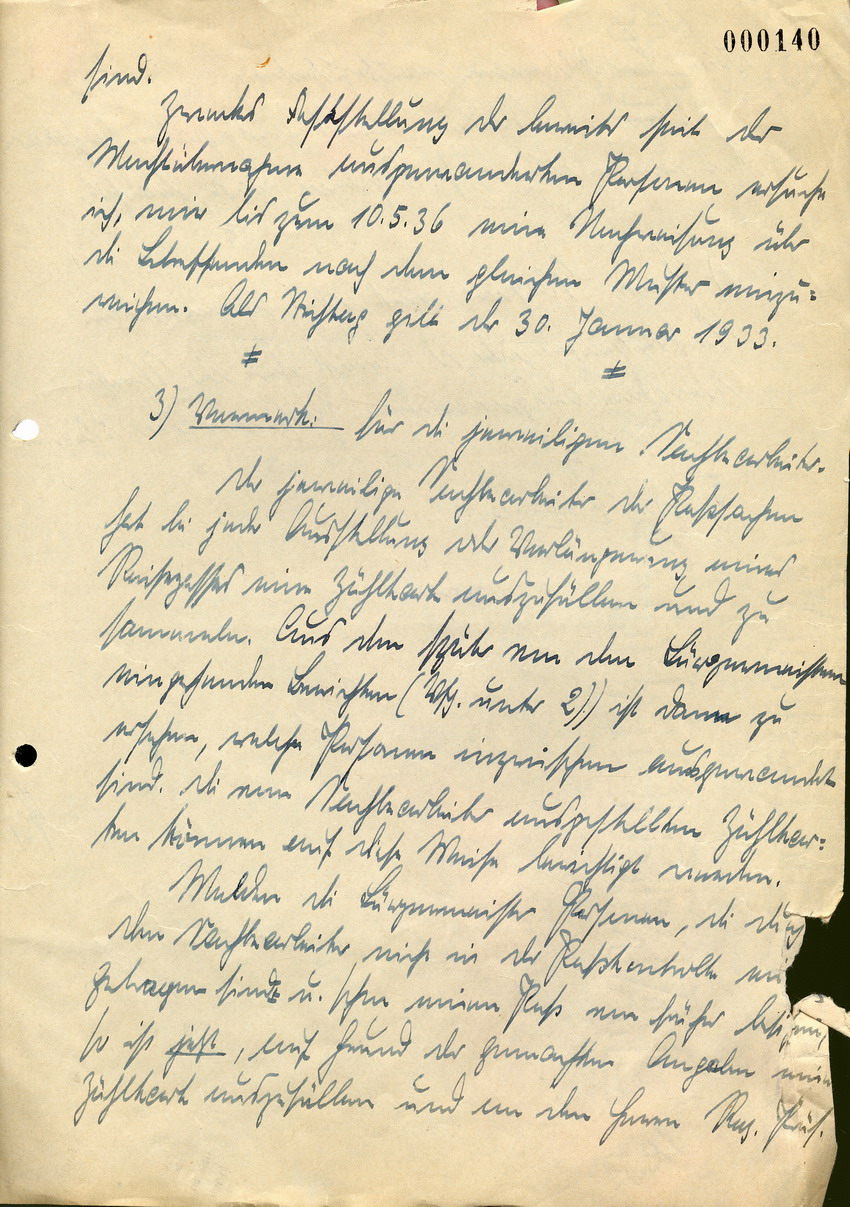 000140
sind.
Zwecks Feststellung der bereits seit der
Machtübernahme ausgewanderten Personen ersuche
ich, mir bis zum 10.5.36 eine Nachweisung über
die Betreffenden nach dem gleichen Muster einzu=
reichen. Als Stichtag gilt der 30. Januar 1933.
3) Vermerk: für die jeweiligen Sachbearbeiter.
Der jeweilige Sachbearbeiter der Paßsachen
hat bei jeder Ausstellung oder Verlängerung eines
Reisepasses eine Zählkarte auszufüllen und zu
sammeln. Aus den später von den Bürgermeistern
eingehenden Berichten (Vfg. unter 2)) ist dann zu
ersehen, welche Personen inzwischen ausgewandert
sind. Die vom Sachbearbeiter ausgestellten Zählkar=
ten können auf diese Weise berichtigt werden.
Melden die Bürgermeister Personen, die durch
den Sachbearbeiter nicht in der Paßkontrolle
getragen sind u. schon einen Paß von früher besitzen,
so ist jetzt, auf Grund der gemachten Angaben eine
Zählkarte auszufüllen und an den Herrn Reg. Präs.